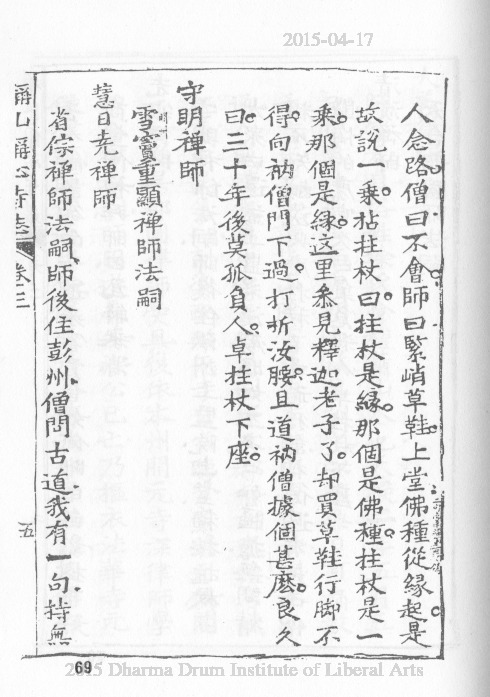 2015-04-17
人念路僧曰不會師曰緊峭草鞋上堂佛種從緣起是
故說一乘拈拄杖曰拄杖是緣那個是佛種拄杖是一
乘那個是緣這里叅見釋迦老子了却買草鞋行脚不
得向衲僧門下過打折汝腰且道衲僧據個甚麽良久
曰三十年後莫孤負人卓拄杖下座
守明禪師
雪竇重顯禪師法嗣
慧日堯禪師
省倧禪師法嗣師後住彭州僧問古道我有一句待無
稱山稱心寺志 卷三 五
69
2015 Dharma Drum Institute of Liberal Arts